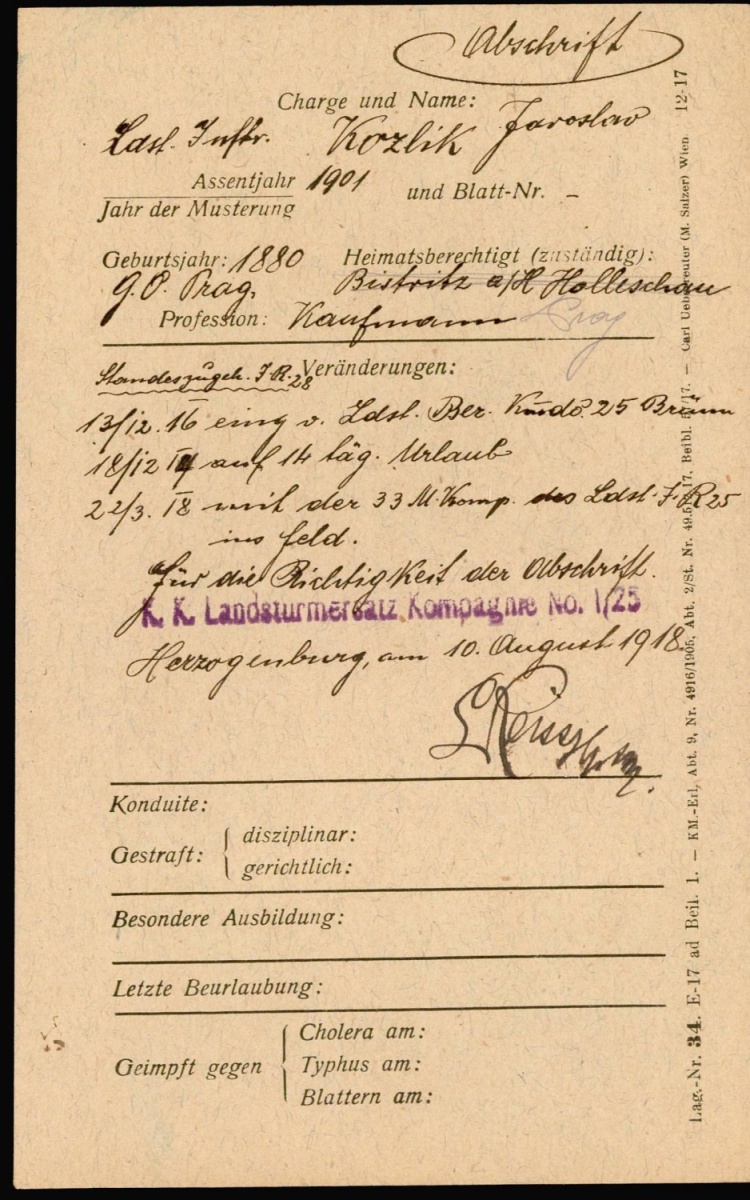 Abschrift
Charge und Name:
Ldst. Inftr. Kozlik Jaroslav
Assentjahr 1901
Jahr der Musterung
und Blatt-Nr. –
Geburtsjahr: 1880 Heimatsberechtigt (zuständig):
G.O. Prag, Bistritz a/H Holleschau
Profession: Kaufmann Prag
Standeszugeh. I.R. 28 Veränderungen:
13/12. 16 eing v. Ldst. Bez. Kmdo. 25 Brünn
18/12 17 auf 14 täg. Urlaub
22/3. 18 mit der 33 M. Komp. des Ldst. I. R 25
ins Feld.
Für die Richtigkeit der Abschrift.
K. K. Landsturmersatz Kompagnie No. 1/25
Herzogenburg, am 10. August 1918.
Konduite:
Gestraft: disziplinar:
gerichtlich:
Besondere Ausbildung:
Letzte Beurlaubung:
Geimpft gegen Cholera am:
Typhus am:
Blattern am:
Lag.-Nr. 34. E-17 ad Beil. 1. — KM.-Erl. Abt. 9, Nr. 4916/1905, Abt. 2/St. Nr. 17, Beibl. /17. — Carl Ueberreuter (M. Salzer) Wien 12-17